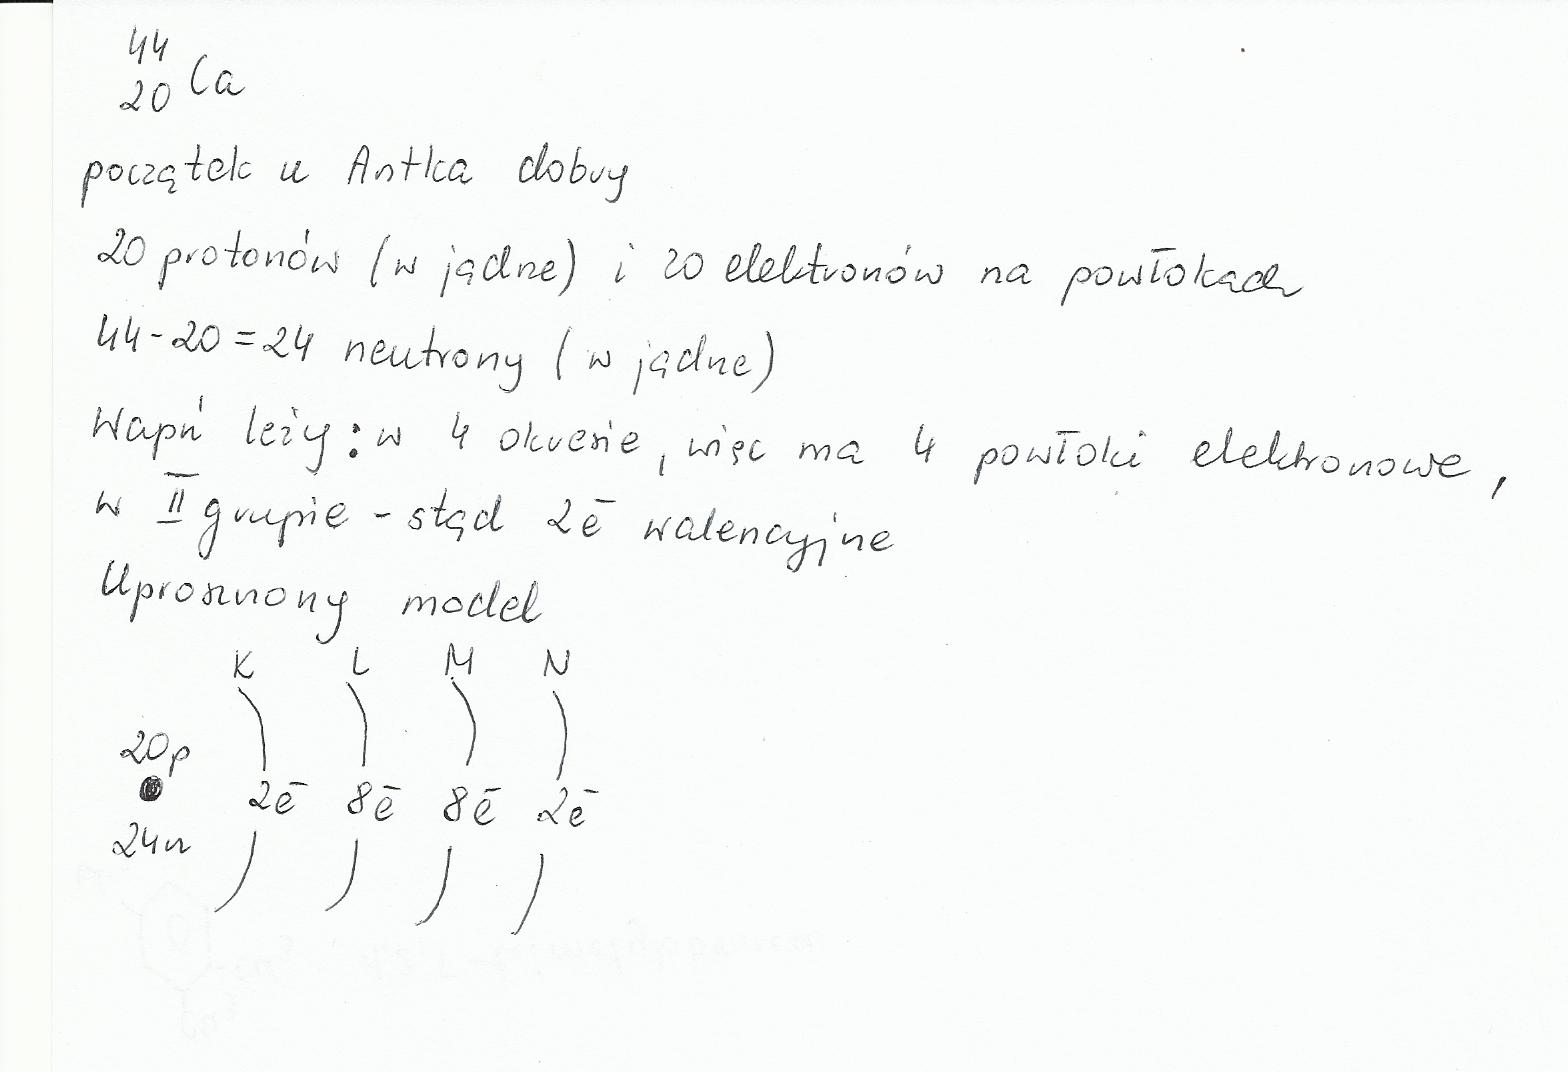 44
20 Ca
początek u Antka dobry
20 protonów (w jądrze) i 20 elektronów na powłokach
44-20=24 neutrony (w jądrze)
Wapń leży: w 4 okresie, więc ma 4 powłoki elektronowe,
w II grupie - stąd 2ē walencyjne
Uproszczony model
K L M N
20p
2ē 8ē 8ē 2ē
24n